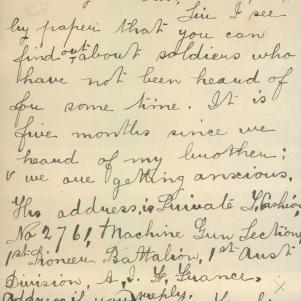 Sir I see
by paper that you can
find out about soldiers who
have not been heard of
for some time. It is
five months since we
heard of my brother;
we are getting anxious.
His address, is Private
No 2761, Machine Gun Section,
1st Pioneer Battalion, 1st Aust
Division, A. I. F. France.
if you reply.